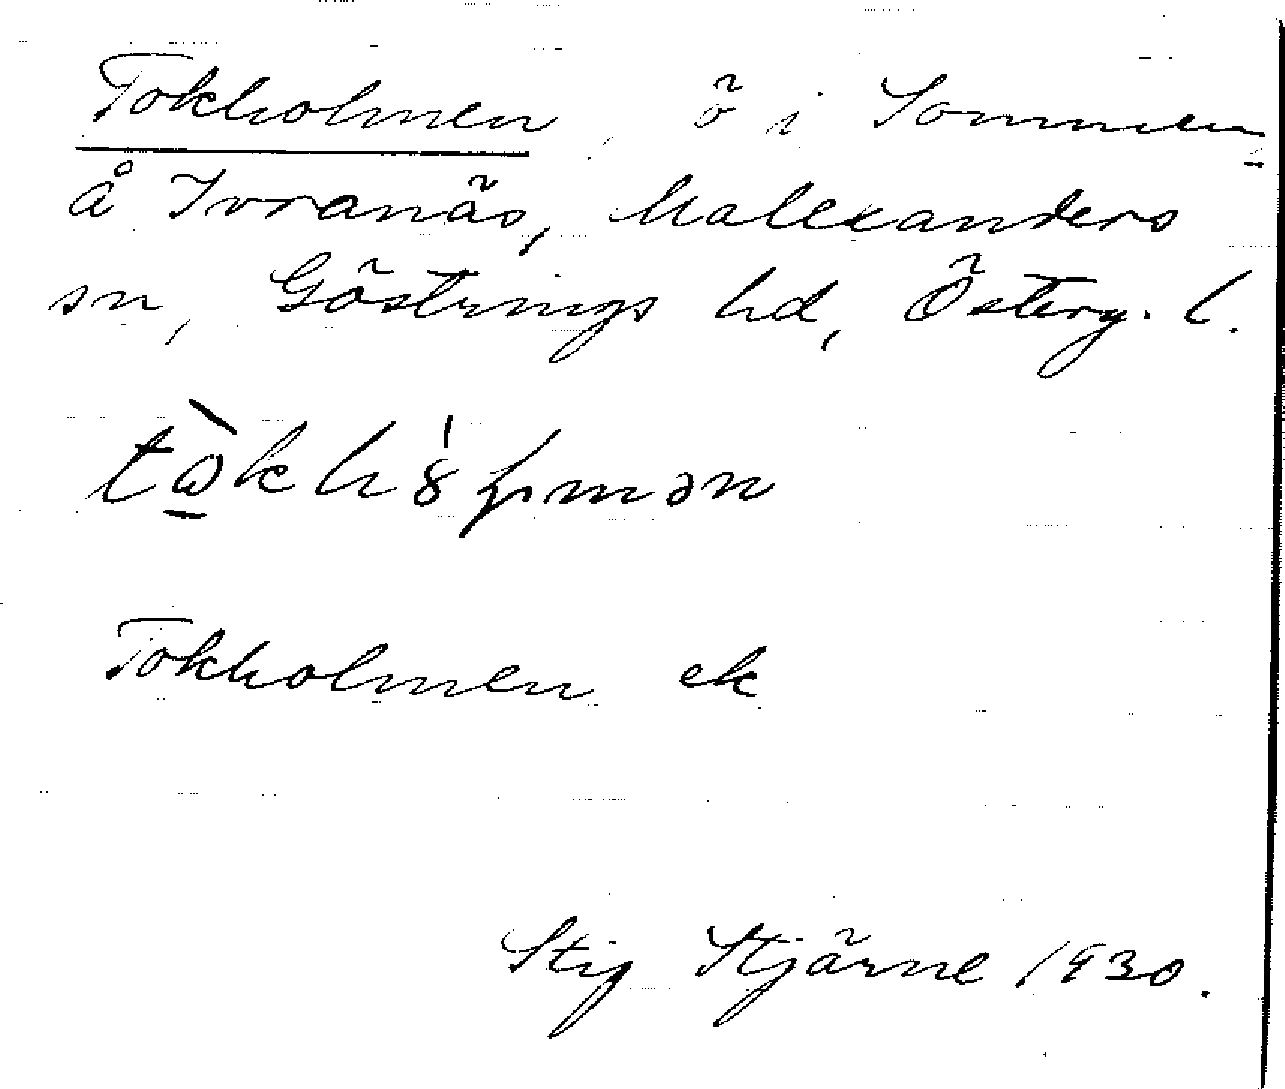 Tokholmen, ö i Sommen
å Ivranäs, Malexanders
sn, Göstrings hd, Österg. l.
Tokholmen ek
Stig Stjärne 1930.